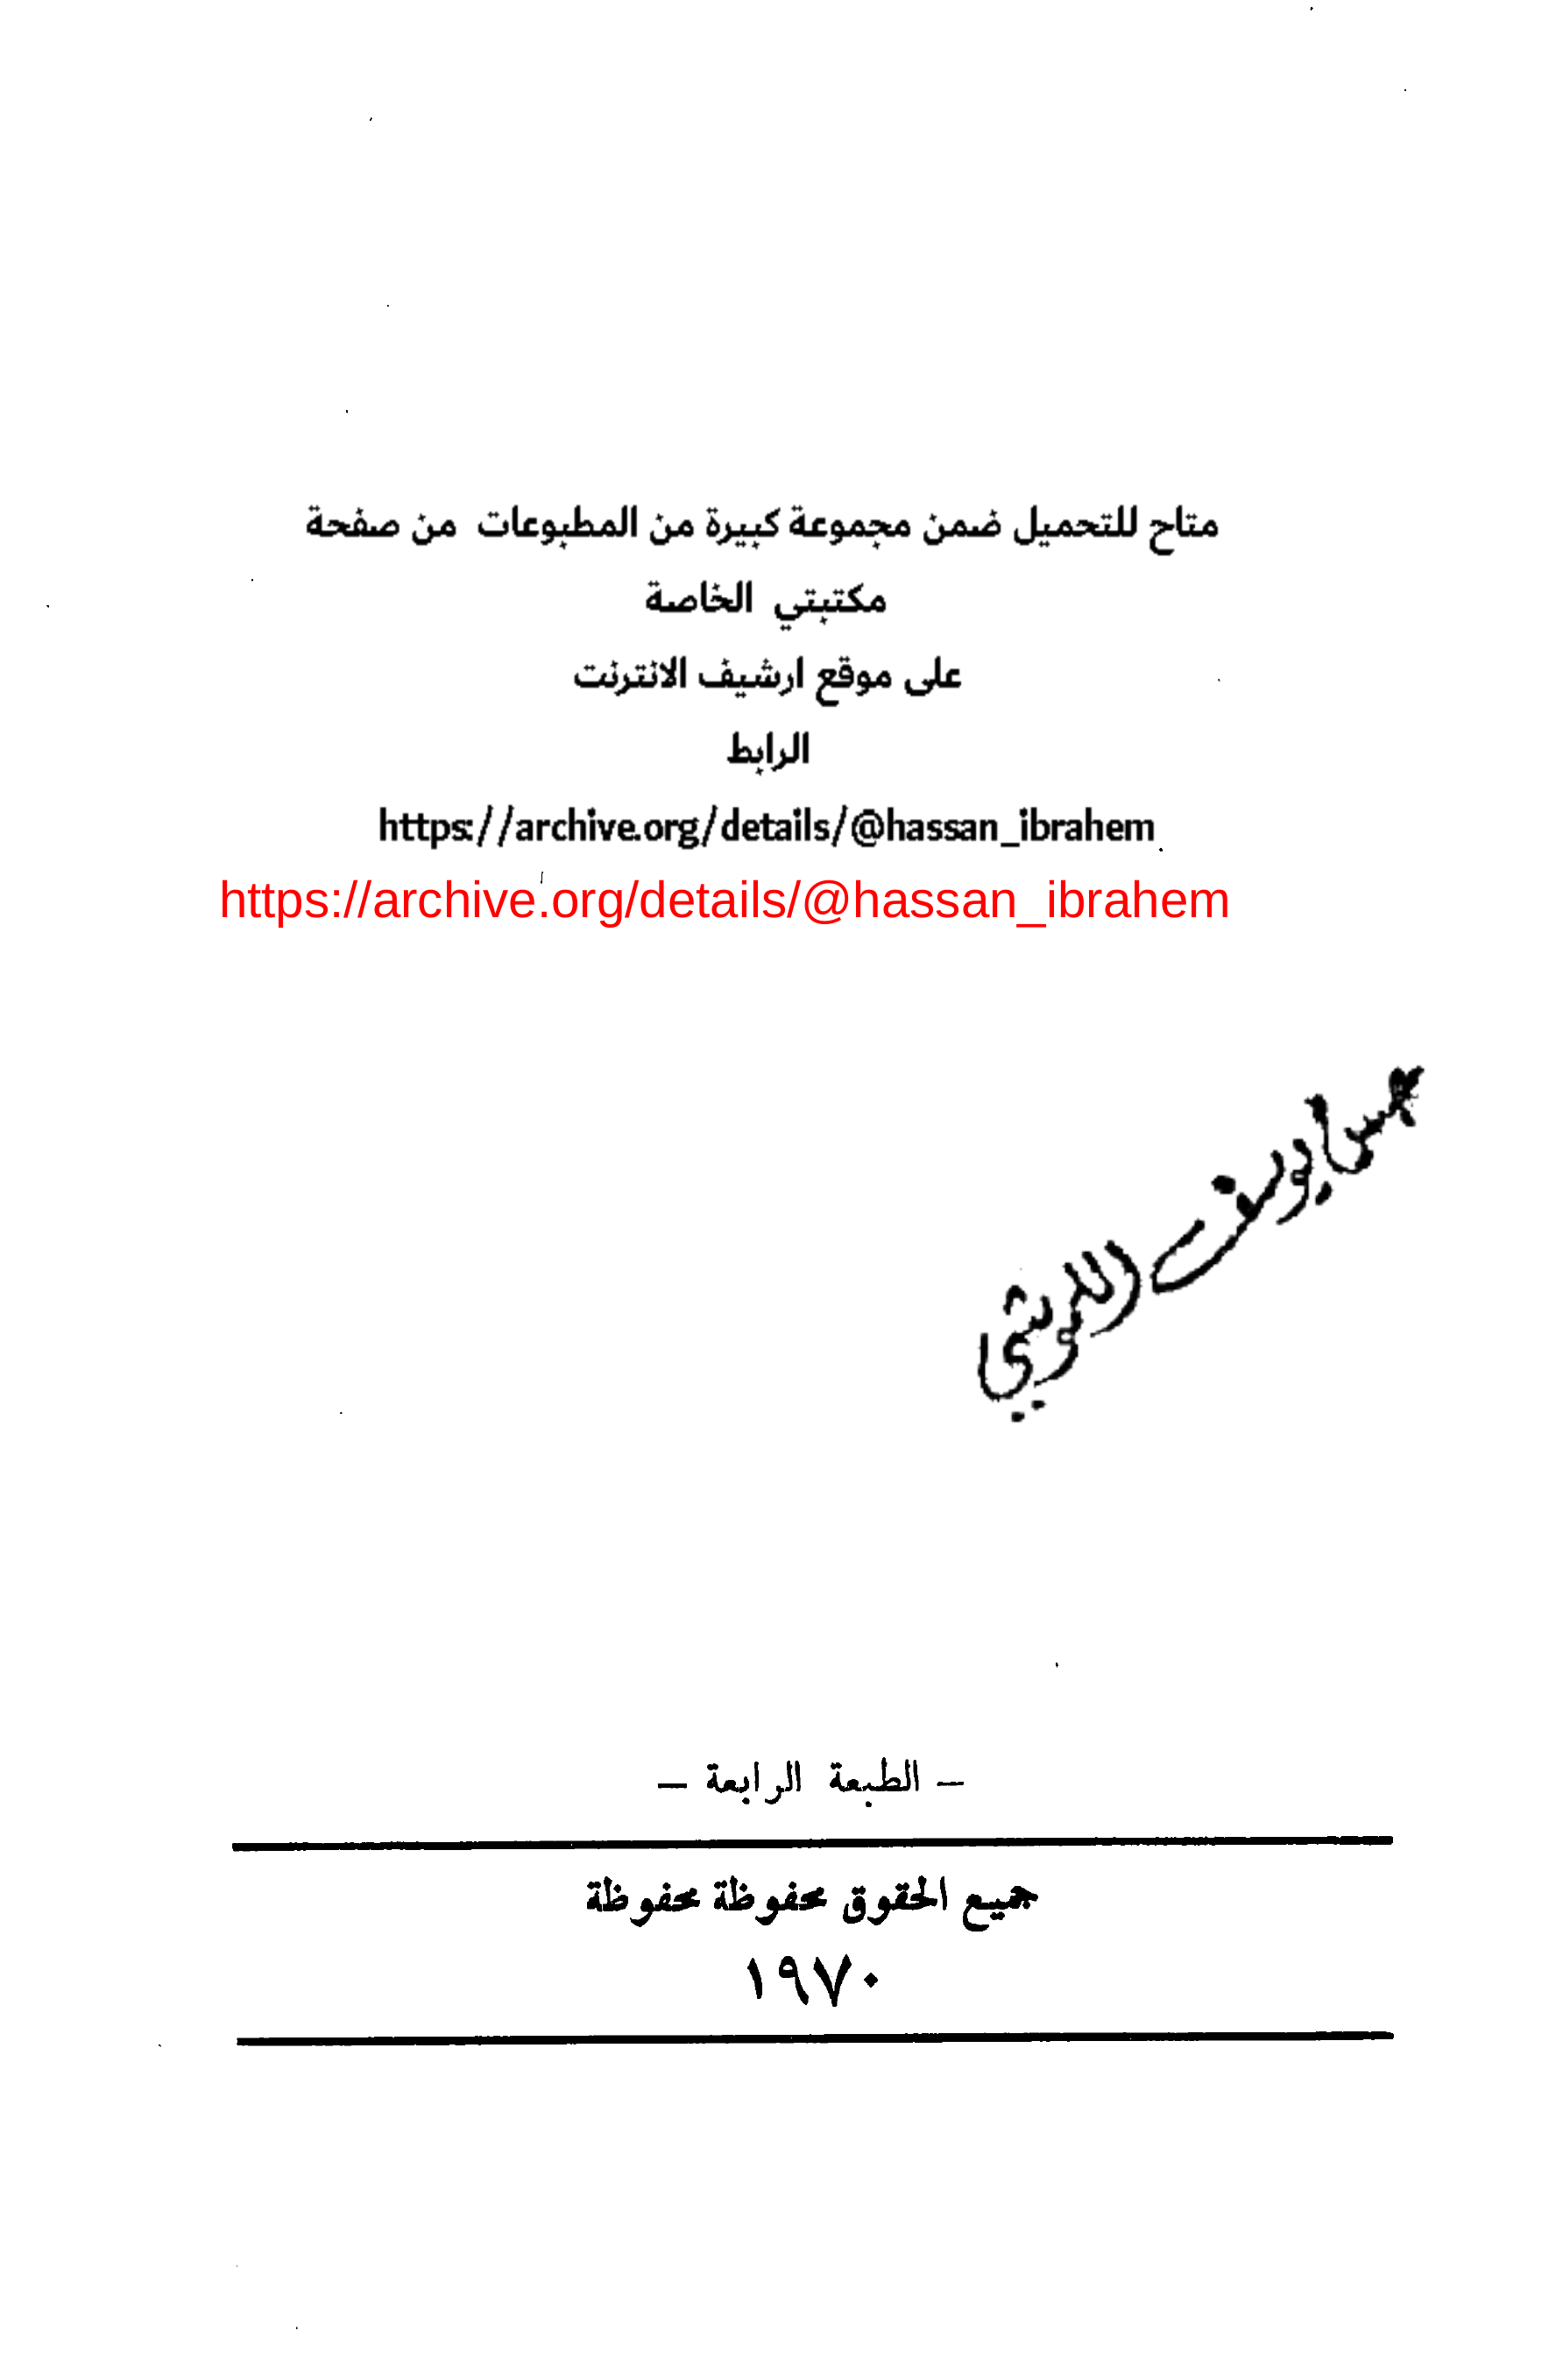 متاح للتحميل ضمن مجموعة كبيرة من المطبوعات من صفحة
مكتبتي الخاصة
على موقع ارشيف الانترنت
الرابط
https://archive.org/details/@hassan_ibrahem
https://archive.org/details/@hassan_ibrahem
يوسف
— الطبعة الرابعة —
جميع الحقوق محفوظة محفوظة
١٩٧٠